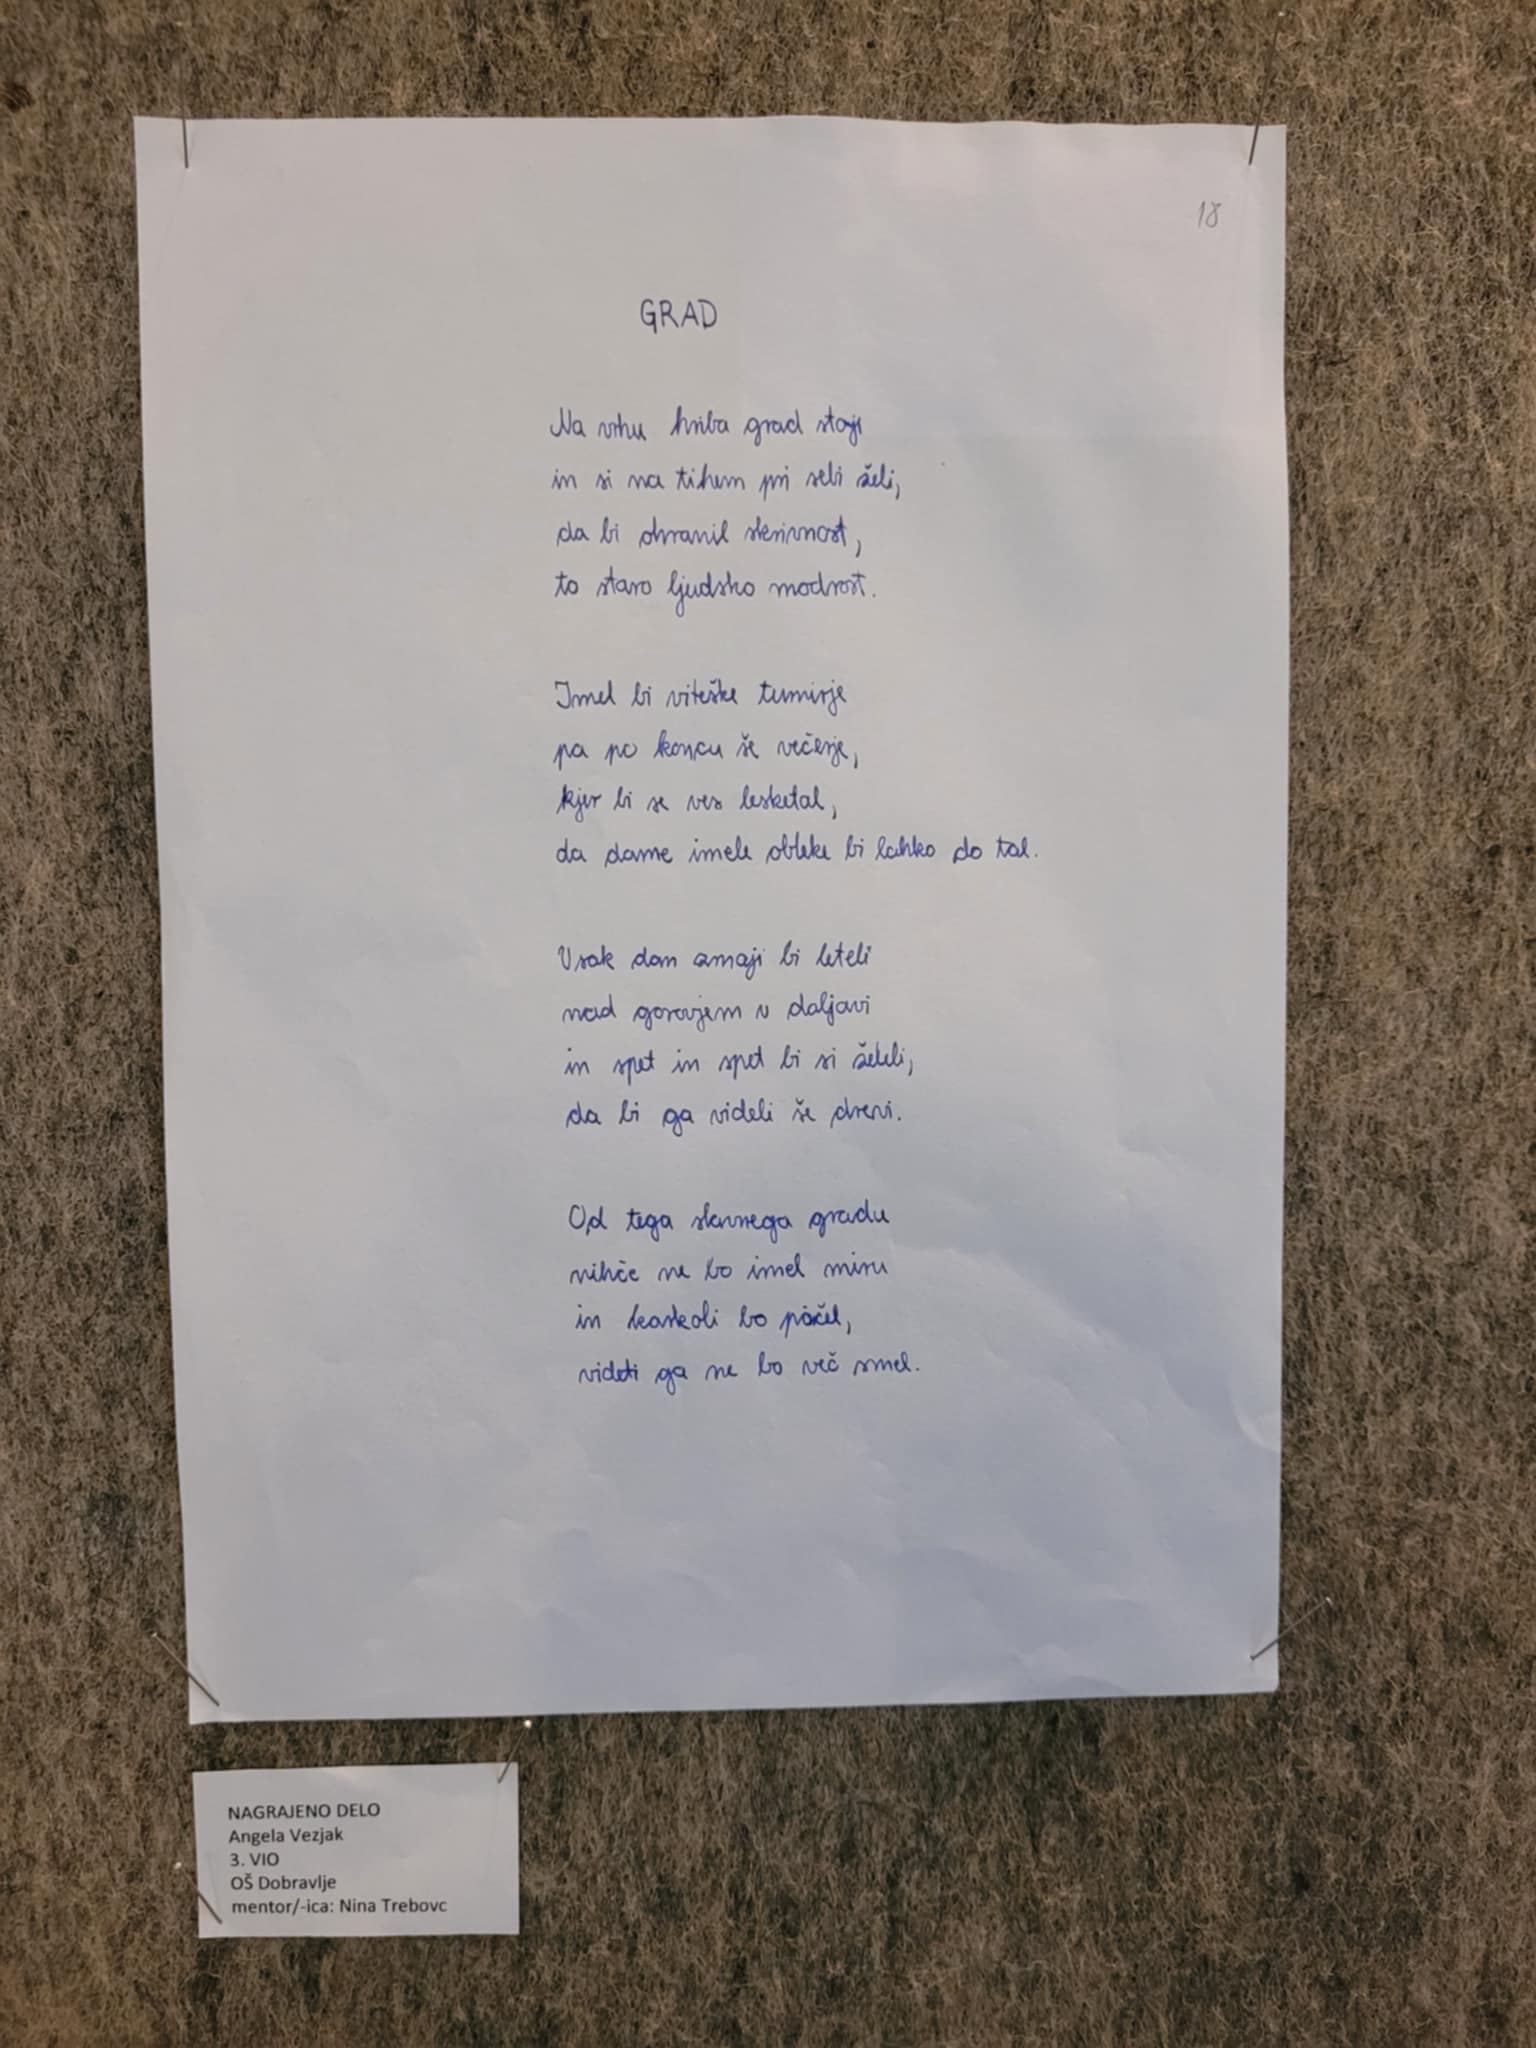 18
GRAD
Na vrhu hriba grad stoji
in si na tihem pri sebi želi,
da bi ohranil skrivnost,
to staro ljudsko modrost.
Imel bi viteške turnirje
pa po koncu še večerje,
kjer bi se ves lesketal,
da dame imele obleke bi lahko do tal.
Vsak dan zmaji bi leteli
nad gorovjem v daljavi
in spet in spet bi si želeli,
da bi ga videli še drevi.
Od tega slavnega gradu
nihče ne bo imel miru
in karkoli bo počel,
videti ga ne bo več smel.
NAGRAJENO DELO
Angela Vezjak
3. VIO
OŠ Dobravlje
mentor/-ica: Nina Trebovc